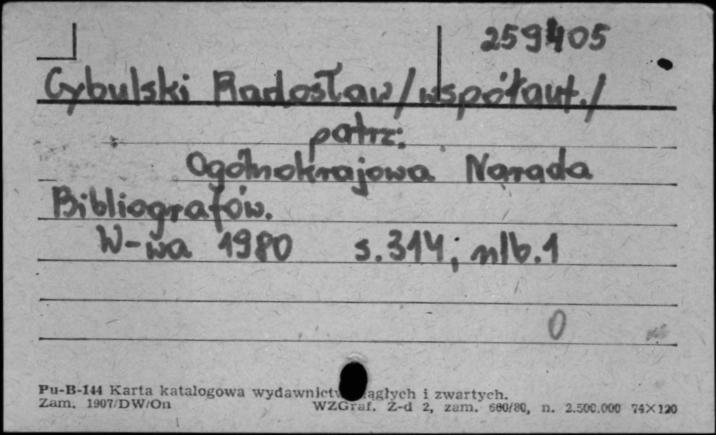 259405
Cybulski Radosław/współaut./
patrz:
Ogólnokrajowa Narada
Bibliografów.
W-wa 1980 s.314; nlb.1
0
Pu-B-144 Karta katalogowa wydawnictw ciągłych i zwartych.
Zam. 1907/DW/On WZGraf. Z-d 2, zam. 660/80, n. 2.500.000 74×120